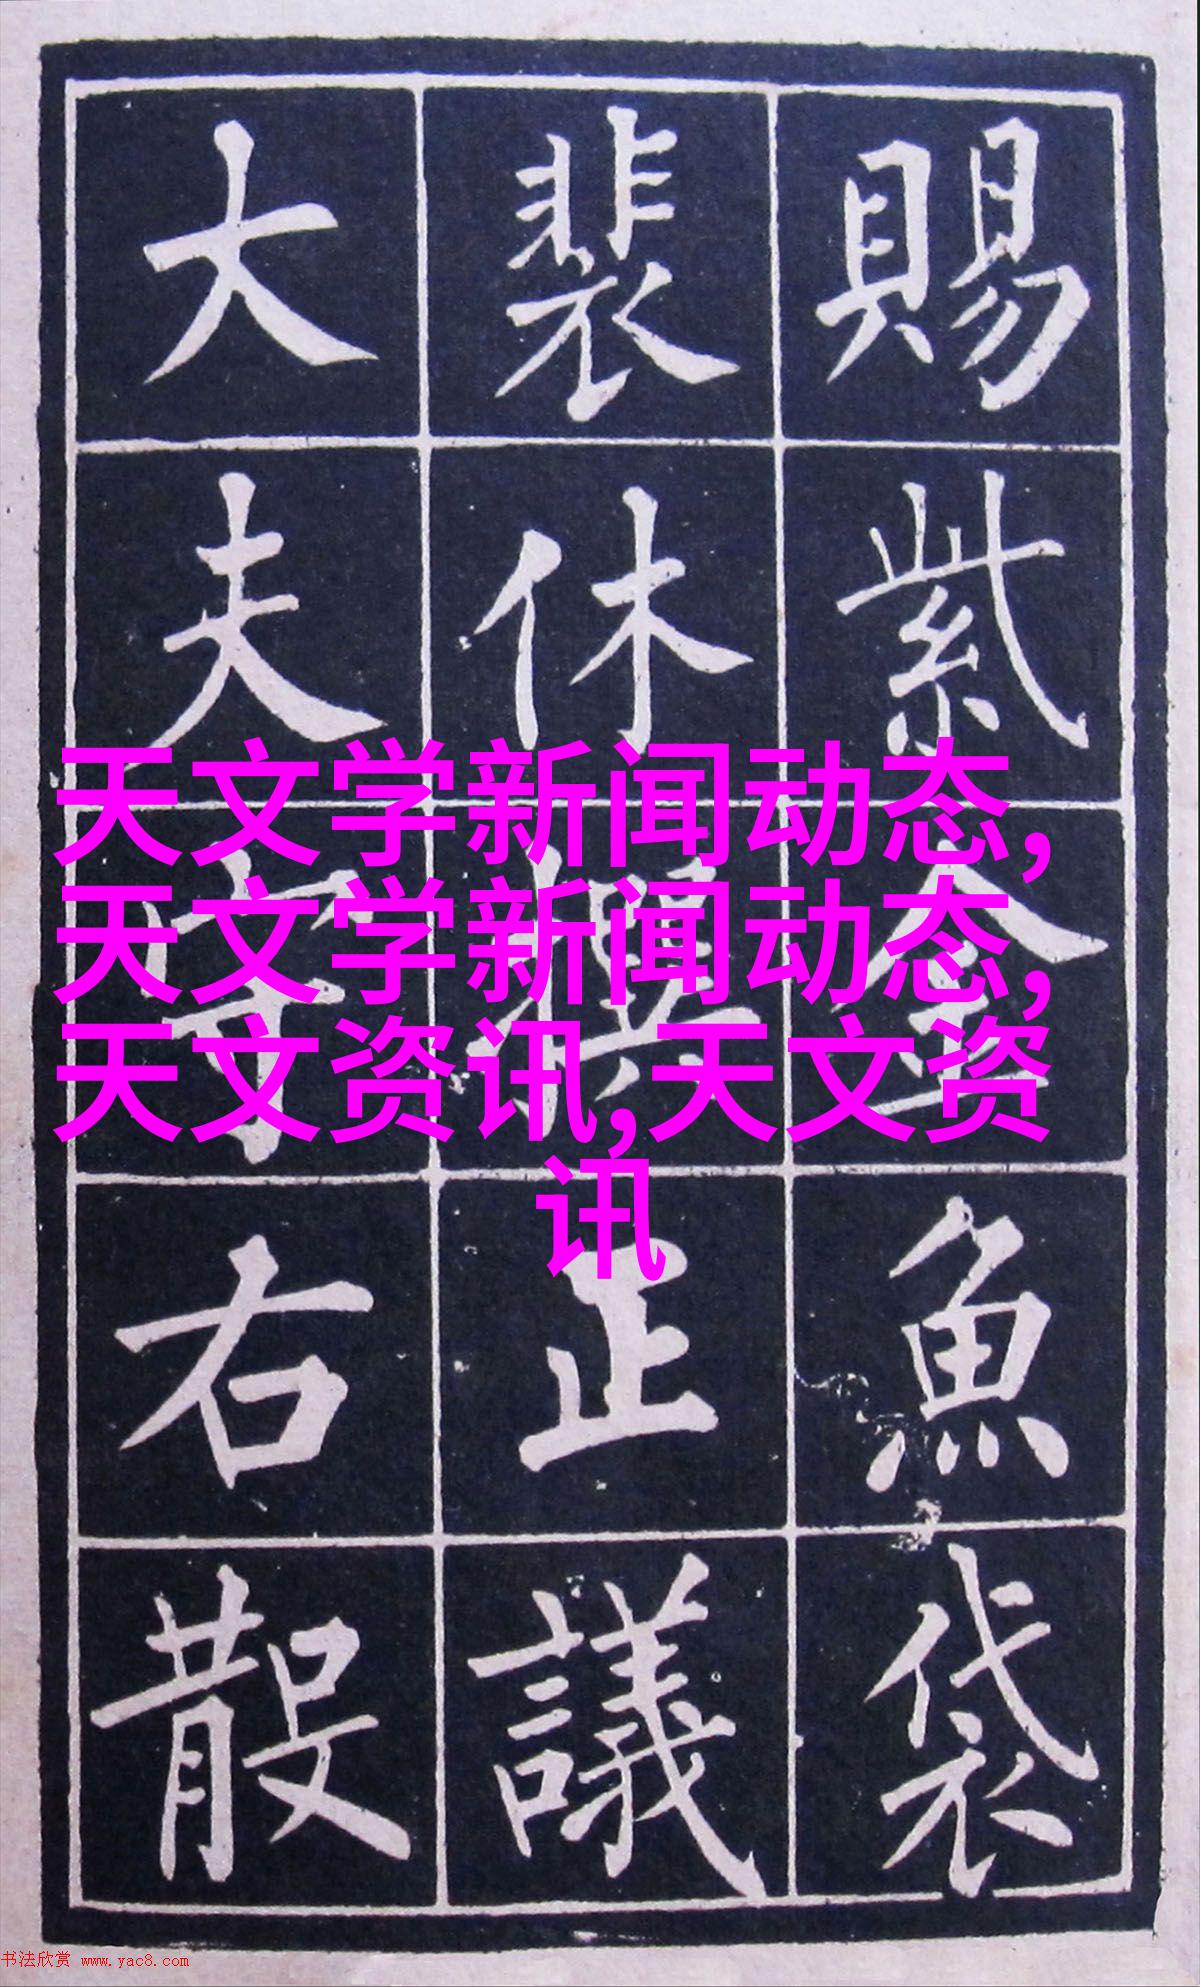 賜紫金魚袋
裴休撰正議
大夫守右散
天文学新闻动态,
天文学新闻动态,
天文资讯,天文资
讯
书法欣赏 www.yac8.com